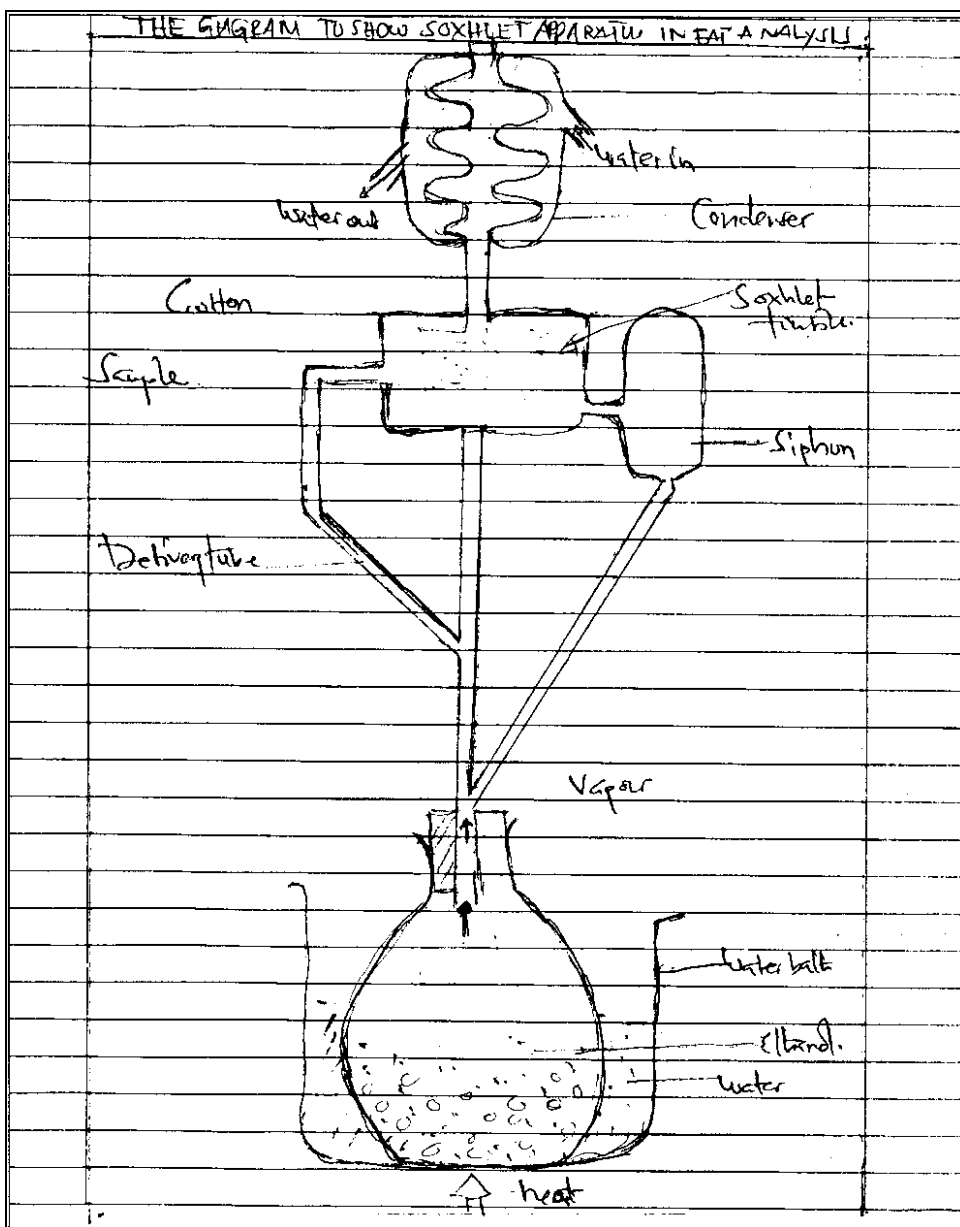 THE GIAGRAM TO SHOW SOXHLET APPARATUS IN FAT ANALYSIS
Water in
Water out
Condenser
Cotton
Soxhlet
Sample
Siphon
Delivery tube
Vapour
Water bath
Ethanol.
Water
heat